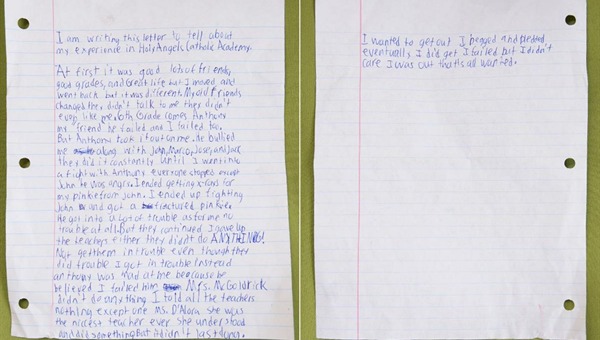 I am writing this letter to tell about
my experience in Holy Angels Catholic Academy.
At first it was good lots of friends,
good grades, and Great life but I moved and
went back but it was different. My old friends
changed they didn't talk to me they didn't
even like me. 6th Grade comes Anthony
my friend he failed and I failed too.
But Anthony took it out on me. He bullied
me along with John, Marco, Jose, and Jack
they did it constantly until I went into
a fight with Anthony everyone stopped except
John he was angry. I ended getting x-rays for
my pinkie from John. I ended up fighting
John and got a fractured pinkie.
He got into a lot of trouble as for me no
trouble at all. But they continued I gave up
the teachers either they didn't do ANYTHING!
Not get them in trouble even though they
did trouble I got in trouble instead
anthony was mad at me because he
believed I failed him Mrs. McGoldrick
didn't do anything I told all the teachers
nothing except one Ms. D'Alora she was
the nicest teacher ever she understood
and did something. But it didn't last long.
I wanted to get out I begged and pleded
eventually I did get I failed but I didn't
care I was out thats all wanted.